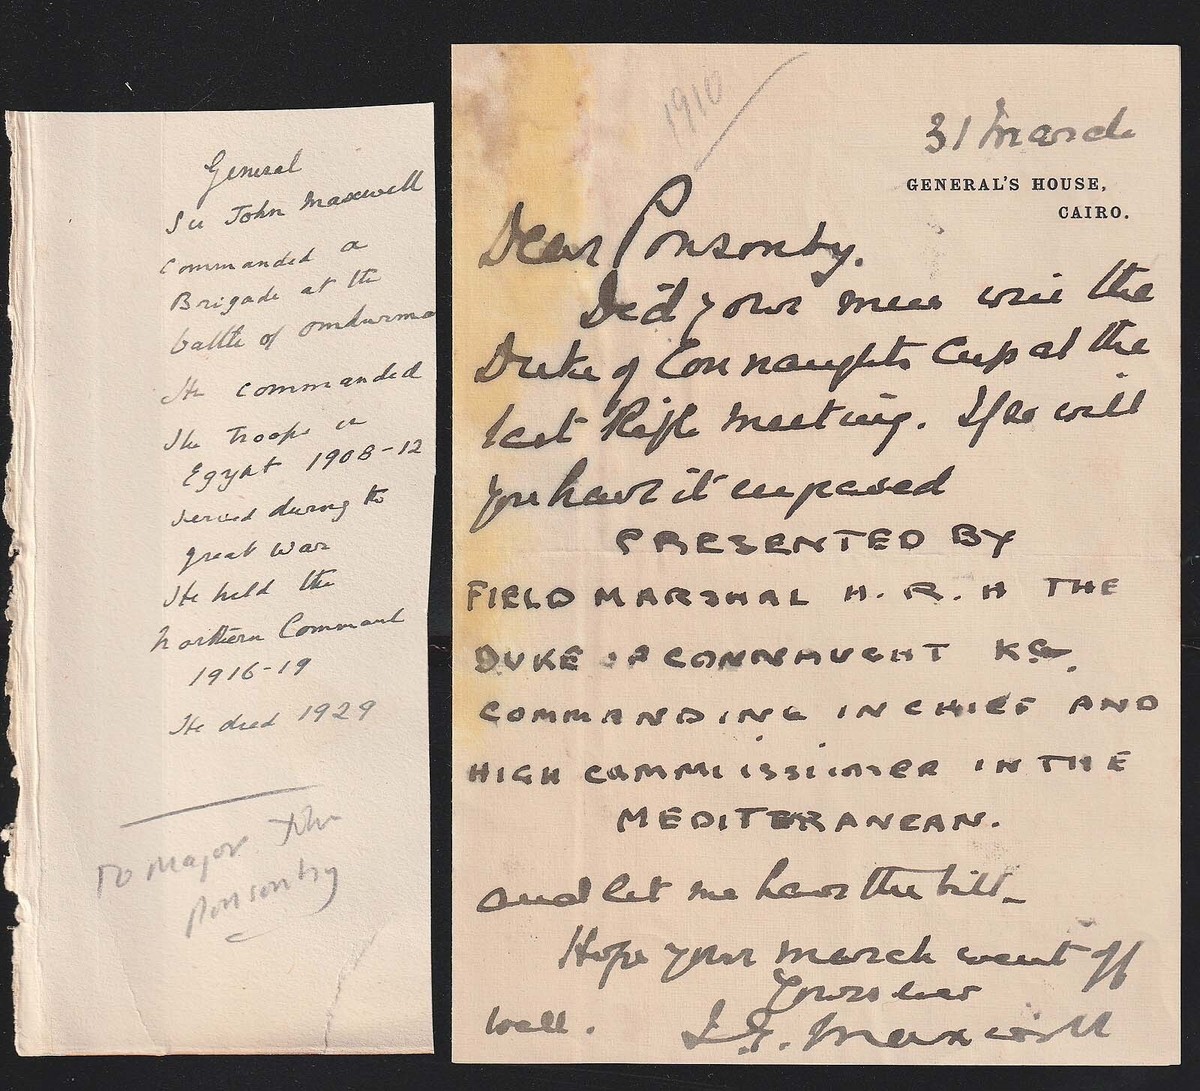 General
Sir John Maxwell
commanded a
Brigade at the
battle of Omdurma
He commanded
the troops in
Egypt 1908-12
served during the
great war
He held the
Northern Command
1916-19
He died 1929
To Major John
Ponsonby
1910
31 March
GENERAL'S HOUSE,
CAIRO.
Dear Ponsonby.
Did your men win the
Duke of Connaughts Cup at the
last Rifle Meeting. If so will
you have it engraved
PRESENTED BY
FIELD MARSHAL H. R. H THE
DUKE OF CONNAUGHT KG.
COMMANDING IN CHIEF AND
HIGH COMMISSIONER IN THE
MEDITERANEAN.
and let me have the bill_
Hope your march went off
well.
Yours ever
J. G. Maxwell